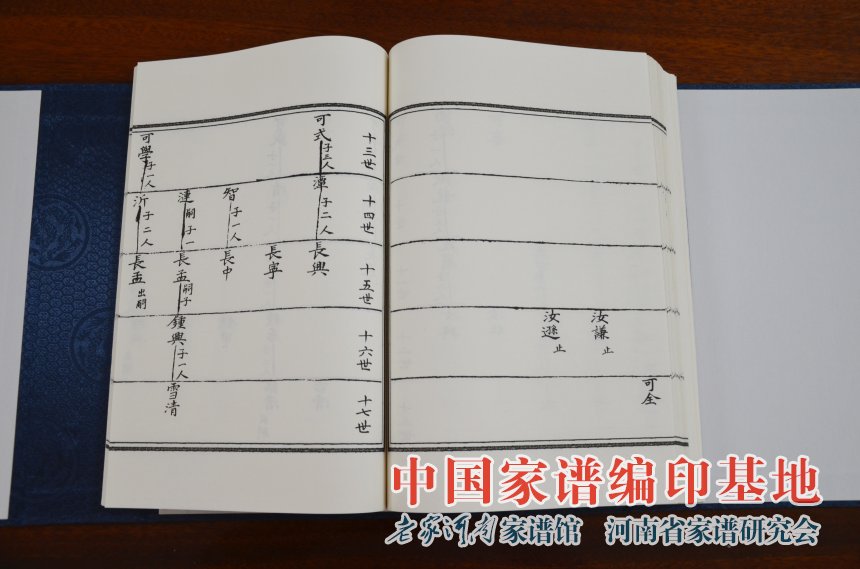 可全
汝謙 止
汝遜 止
十三世
十四世
十五世
十六世
十七世
可式 子三人
潭 子二人
長興
長寧
智 子一人
長中
漣 嗣子一
長孟 嗣子
鍾興 子一人
雪清
可學 子一人
沂 子二人
長孟 出嗣
中国家谱编印基地
老家河南家谱馆 河南省家谱研究会